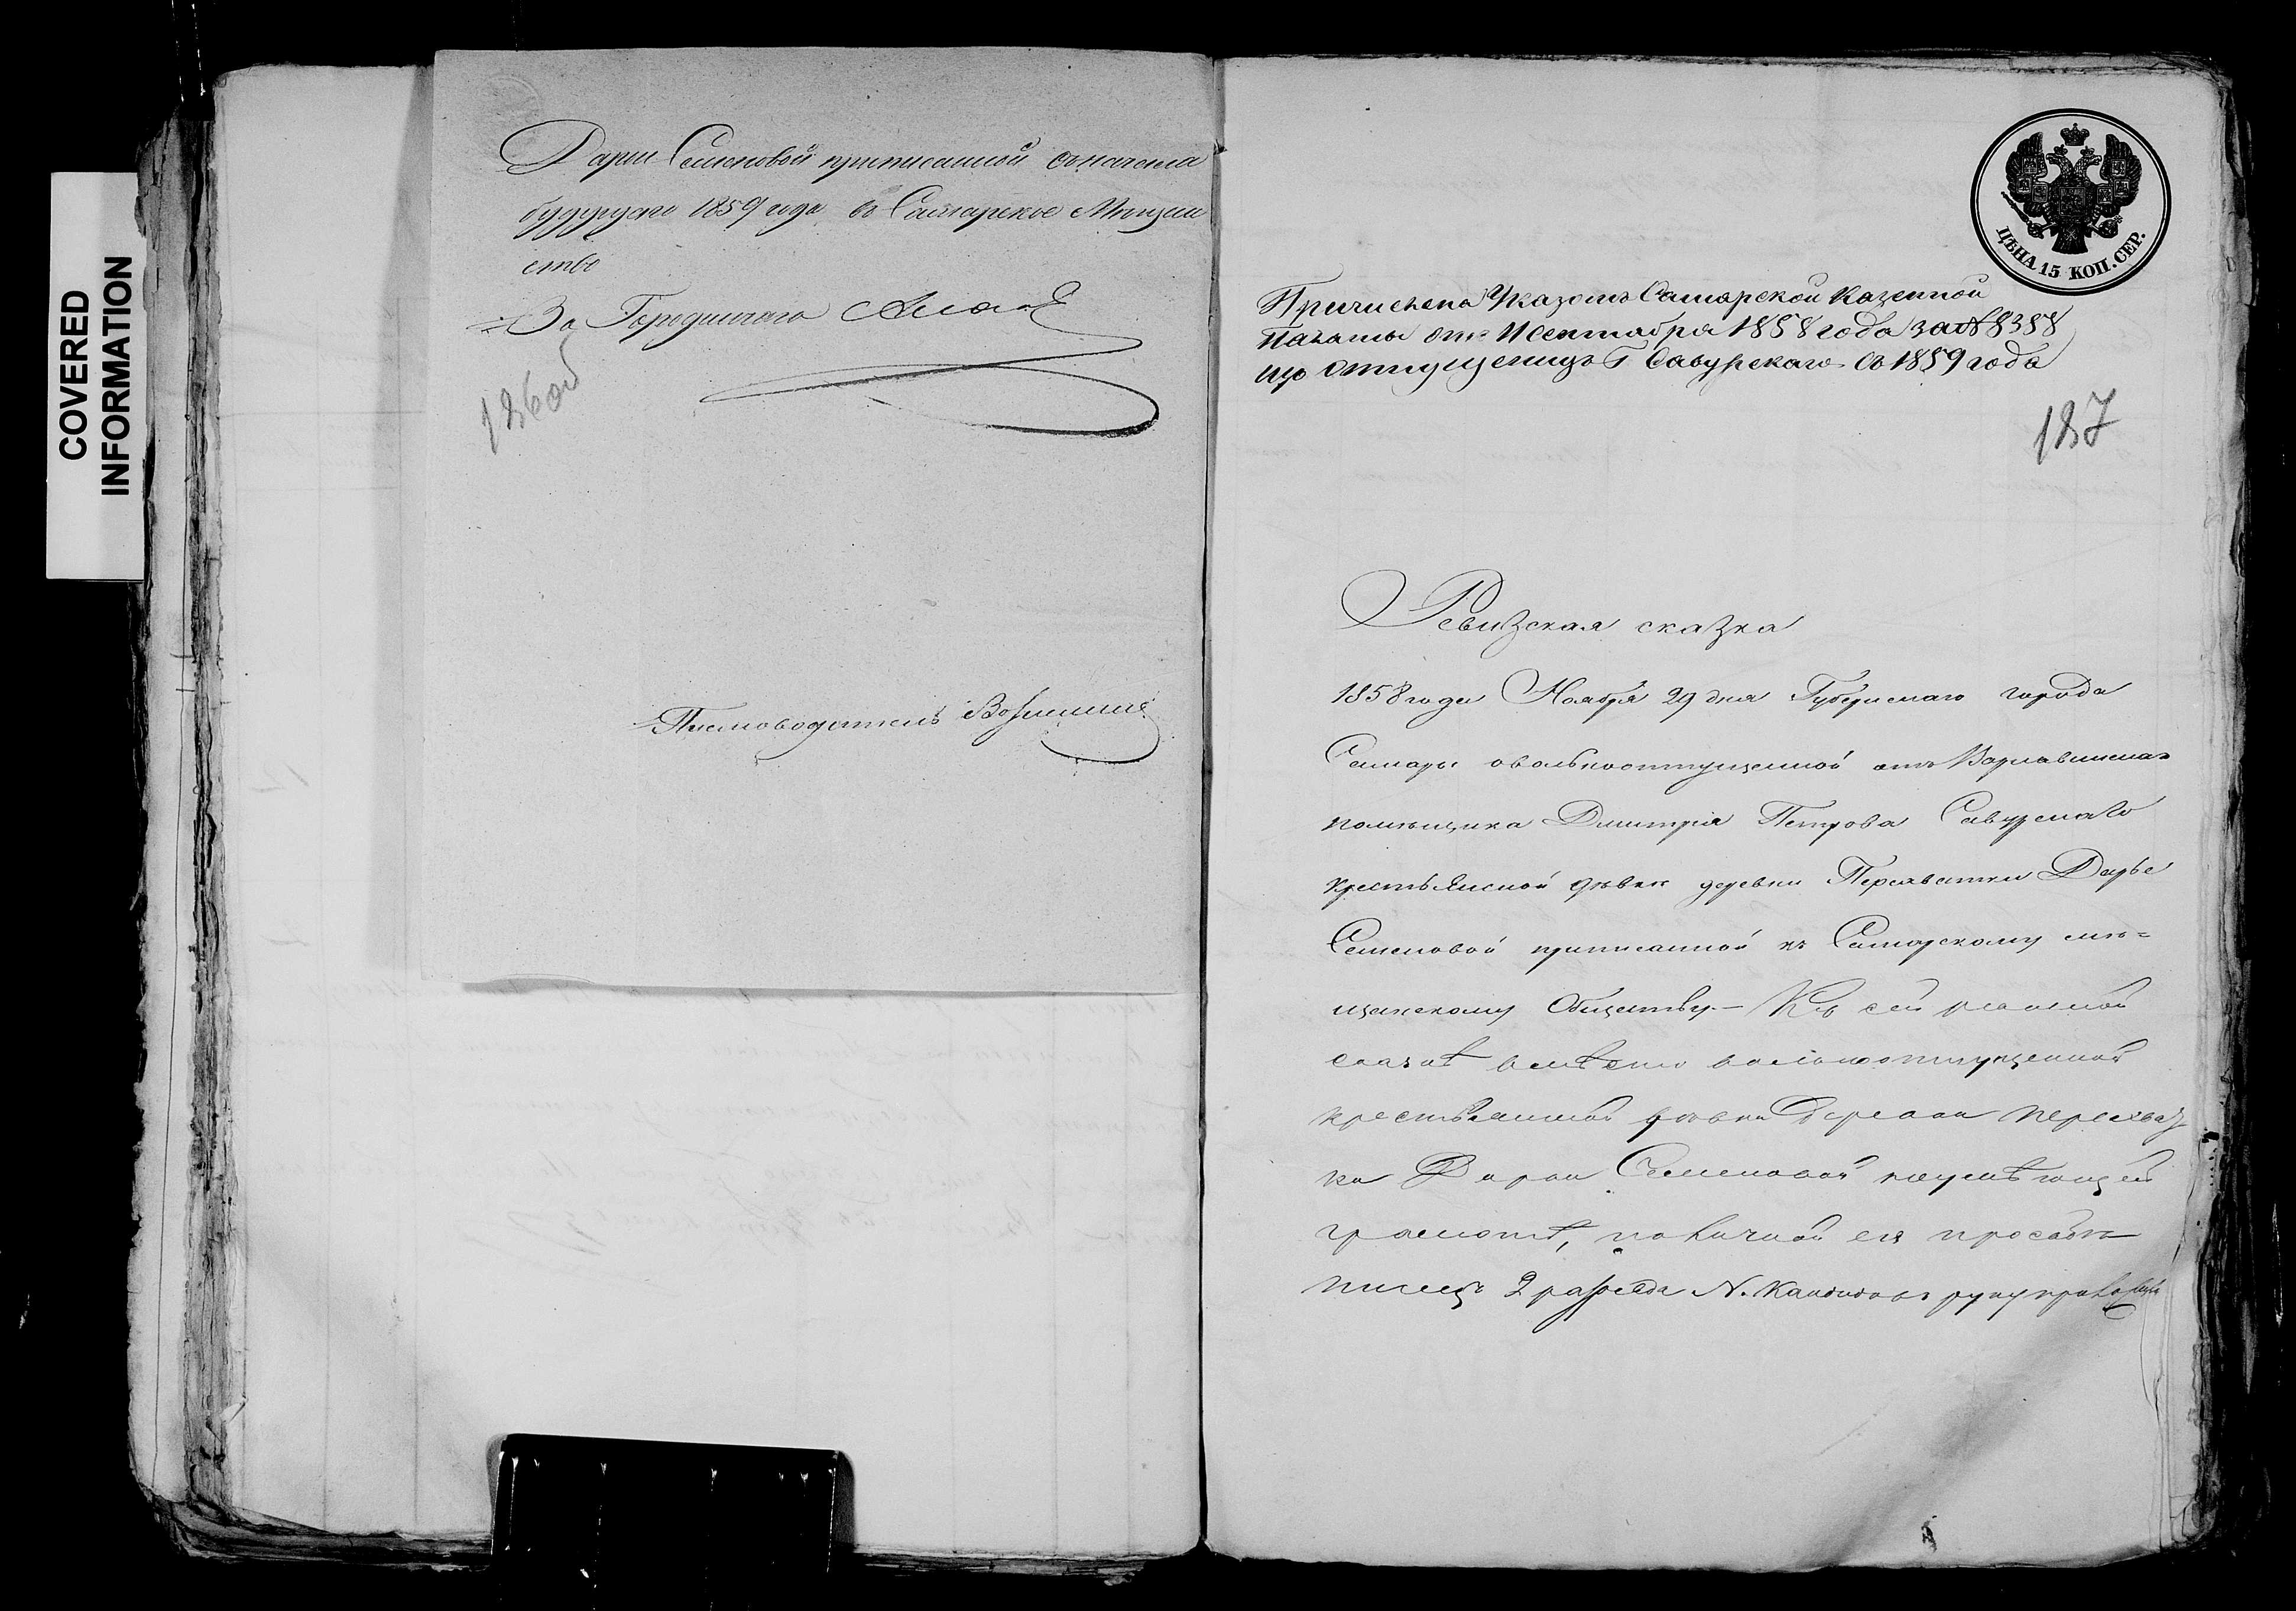 COVERED
INFORMATION
Дарьи Семеновой приписанной съ начала
будущаго 1859 года въ Самарское Мѣщан
ство
За Городничаго
186об
Письмоводитель
ЦѢНА 15 КОП. СЕР.
Причислена Указомъ Самарской Казенной
Палаты отъ 11 сентября 1858 года за № 8358
изъ отпущеницъ Г Савурскаго съ 1859 года
187
Ревизская сказка
1858 года Ноября 29 дня Губернскаго города
Самары о вольноотпущенной отъ Варнавинскаго
помѣщика Дмитрія Петрова Савурскаго
крестьянской дѣвки деревни Дарье
Семеновой приписанной къ Самарскому мѣ=
щанскому Обществу. – Къ сей ревизкой
сказкѣ вмѣсто вольноотпущенной
крестьянской дѣвки Деревни Перехват
ки Дарьи Семеновой неумѣющей
грамотѣ, по личной ея просьбѣ
писецъ 2 разряда N. Кандидовъ руку приложилъ